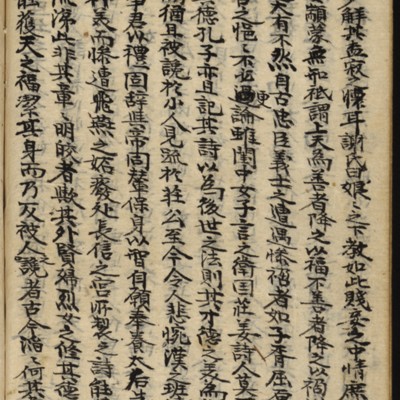 解其孟寂懷耳謝氏曰娘之下教如此賤妾之中情庶
顓蒙無知祗謂上天為善者降之以福不善者降之以禍
大有不然自古忠臣義士之遭遇慘禍者如子胥屈
言之悒不近論更雖閨中女子言之衛国莊姜詩人莫
德孔子亦且記其詩以為後世之法則其才德之美為
猶且被說於小人見疏於莊公至今令人悲惋漢之班
事君以禮固辭與帝同輦保身以智自願奉養太后
而慘遭飛燕之妬廢處長信之宮所製之詩能
流涕此非其章〻明皎者歟其外賢婦烈女之修其德
能獲天之福潔其身而乃反被人讒者古今滔〻何其